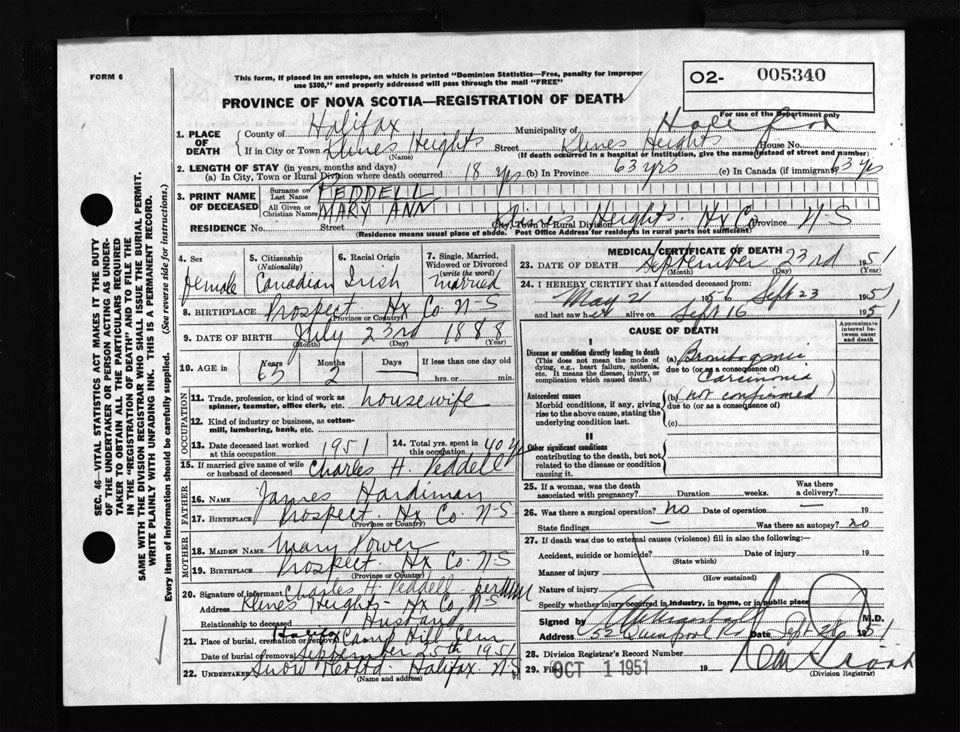 FORM 6
This form, if placed in an envelope, on which is printed "Dominion Statistics—Free, penalty for improper
use $300," and properly addressed will pass through the mail "FREE"
O2- 005340
For use of the Department only
PROVINCE OF NOVA SCOTIA—REGISTRATION OF DEATH
1. PLACE OF DEATH
County of Halifax Municipality of Halifax
If in City or Town Klines Heights Street Klines Heights House No.
(Name) (If death occurred in a hospital or institution, give the name instead of street and number)
2. LENGTH OF STAY (in years, months and days)
(a) In City, Town or Rural Division where death occurred 18 yrs (b) In Province 63 yrs (c) In Canada (if immigrant) 63 yrs
3. PRINT NAME OF DECEASED
Surname or Last Name PEDDELL
All Given or Christian Names MARY ANN
RESIDENCE No. Street Kline's Heights. Hx Co. City, Town or Rural Division Province N-S
(Residence means usual place of abode. Post Office Address for residents in rural parts not sufficient)
4. Sex female
5. Citizenship (Nationality) Canadian
6. Racial Origin Irish
7. Single, Married, Widowed or Divorced (write the word) married
8. BIRTHPLACE Prospect Hx Co N-S
(Province or Country)
9. DATE OF BIRTH July 23rd 1888
(Month) (Day) (Year)
10. AGE Years 63 Months 2 Days — If less than one day old
hrs. or min.
OCCUPATION
11. Trade, profession, or kind of work as spinner, teamster, office clerk, etc. housewife
12. Kind of industry or business, as cotton-mill, lumbering, bank, etc.
13. Date deceased last worked at this occupation 1951
14. Total yrs. spent in this occupation 40 yrs
15. If married give name of wife or husband of deceased Charles H. Peddell
FATHER
16. NAME James Hardiman
17. BIRTHPLACE Prospect. Hx Co. N-S
(Province or Country)
MOTHER
18. MAIDEN NAME Mary Power
19. BIRTHPLACE Prospect. Hx Co N-S
(Province or Country)
20. Signature of informant Charles H. Peddell per
Address Klines Heights- Hx Co, N-S
Relationship to deceased Husband
21. Place of burial, cremation or removal Halifax Camp Hill Cem
Date of burial or removal September 25th 1951
22. UNDERTAKER Snow & Co Ltd. Halifax N.S
(Name and address)
MEDICAL CERTIFICATE OF DEATH
23. DATE OF DEATH September 23rd 1951
(Month) (Day) (Year)
24. I HEREBY CERTIFY that I attended deceased from:
May 21 Sept 23 1951
and last saw her alive on Sept 16 1951
CAUSE OF DEATH
Approximate interval between onset and death
I
Disease or condition directly leading to death
(This does not mean the mode of dying, e.g., heart failure, asthenia, etc. It means the disease, injury, or complication which caused death.)
(a) Bronchogenic
due to (or as a consequence of)
Carcinoma
Antecedent causes
Morbid conditions, if any, giving rise to the above cause, stating the underlying condition last.
(b) not confirmed
due to (or as a consequence of)
(c)
II
Other significant conditions
contributing to the death, but not related to the disease or condition causing it.
25. If a woman, was the death associated with pregnancy? Duration weeks. Was there a delivery? —
26. Was there a surgical operation? no Date of operation — 19
State findings — Was there an autopsy? no
27. If death was due to external causes (violence) fill in also the following:
Accident, suicide or homicide? Date of injury 19
(State which)
Manner of injury
(How sustained)
Nature of injury
Specify whether injury occurred in industry, in home, or in public place
Signed by M.D.
Address 52 Quinpool Rd Date Sept 1951
28. Division Registrar's Record Number
29. Filed OCT 1 1951 19
(Division Registrar)
SEC. 46—VITAL STATISTICS ACT MAKES IT THE DUTY
OF THE UNDERTAKER OR PERSON ACTING AS UNDER-
TAKER TO OBTAIN ALL THE PARTICULARS REQUIRED
IN THE "REGISTRATION OF DEATH" AND TO FILE THE
SAME WITH THE DIVISION REGISTRAR WHO SHALL ISSUE THE BURIAL PERMIT.
WRITE PLAINLY WITH UNFADING INK. THIS IS A PERMANENT RECORD.
Every item of information should be carefully supplied. (See reverse side for instructions.)